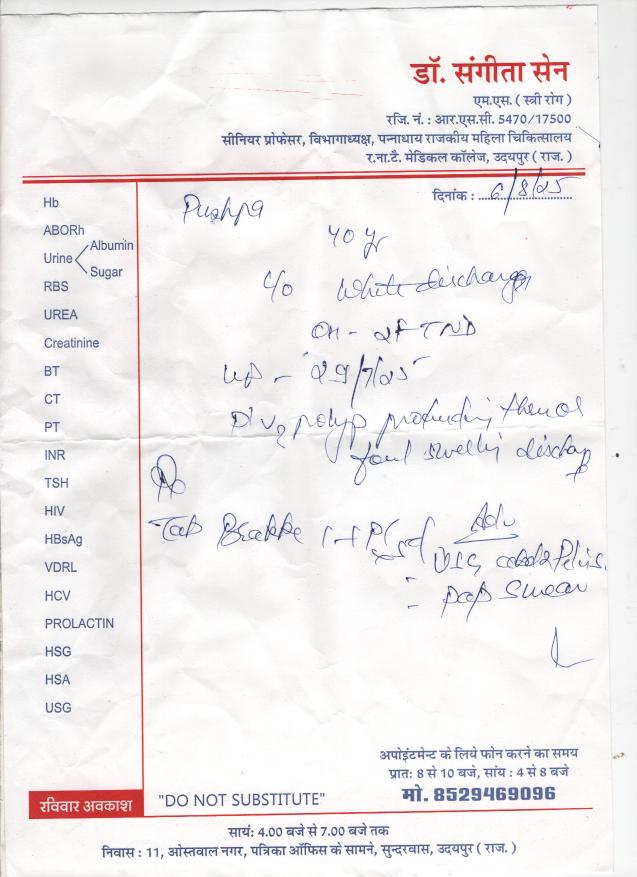 डॉ. संगीता सेन
एम.एस. ( स्त्री रोग )
रजि. नं. : आर.एस.सी. 5470/17500
सीनियर प्रोफेसर, विभागाध्यक्ष, पन्नाधाय राजकीय महिला चिकित्सालय
र.ना.टै. मेडिकल कॉलेज, उदयपुर ( राज. )
दिनांक : 6/8/25
Pushpa
40 yr
c/o White discharge
OH - 2FTND
LMP - 29/7/25
polyp protruding
foul smelling discharge
Rx
Tab
Adv
USG Pelvis.
- pap smear
Hb
ABORh
Urine Albumin
Sugar
RBS
UREA
Creatinine
BT
CT
PT
INR
TSH
HIV
HBsAg
VDRL
HCV
PROLACTIN
HSG
HSA
USG
अपोइंटमेन्ट के लिये फोन करने का समय
प्रातः 8 से 10 बजे, सांय : 4 से 8 बजे
मो. 8529469096
रविवार अवकाश
"DO NOT SUBSTITUTE"
सायं: 4.00 बजे से 7.00 बजे तक
निवास : 11, ओस्तवाल नगर, पत्रिका ऑफिस के सामने, सुन्दरवास, उदयपुर ( राज. )